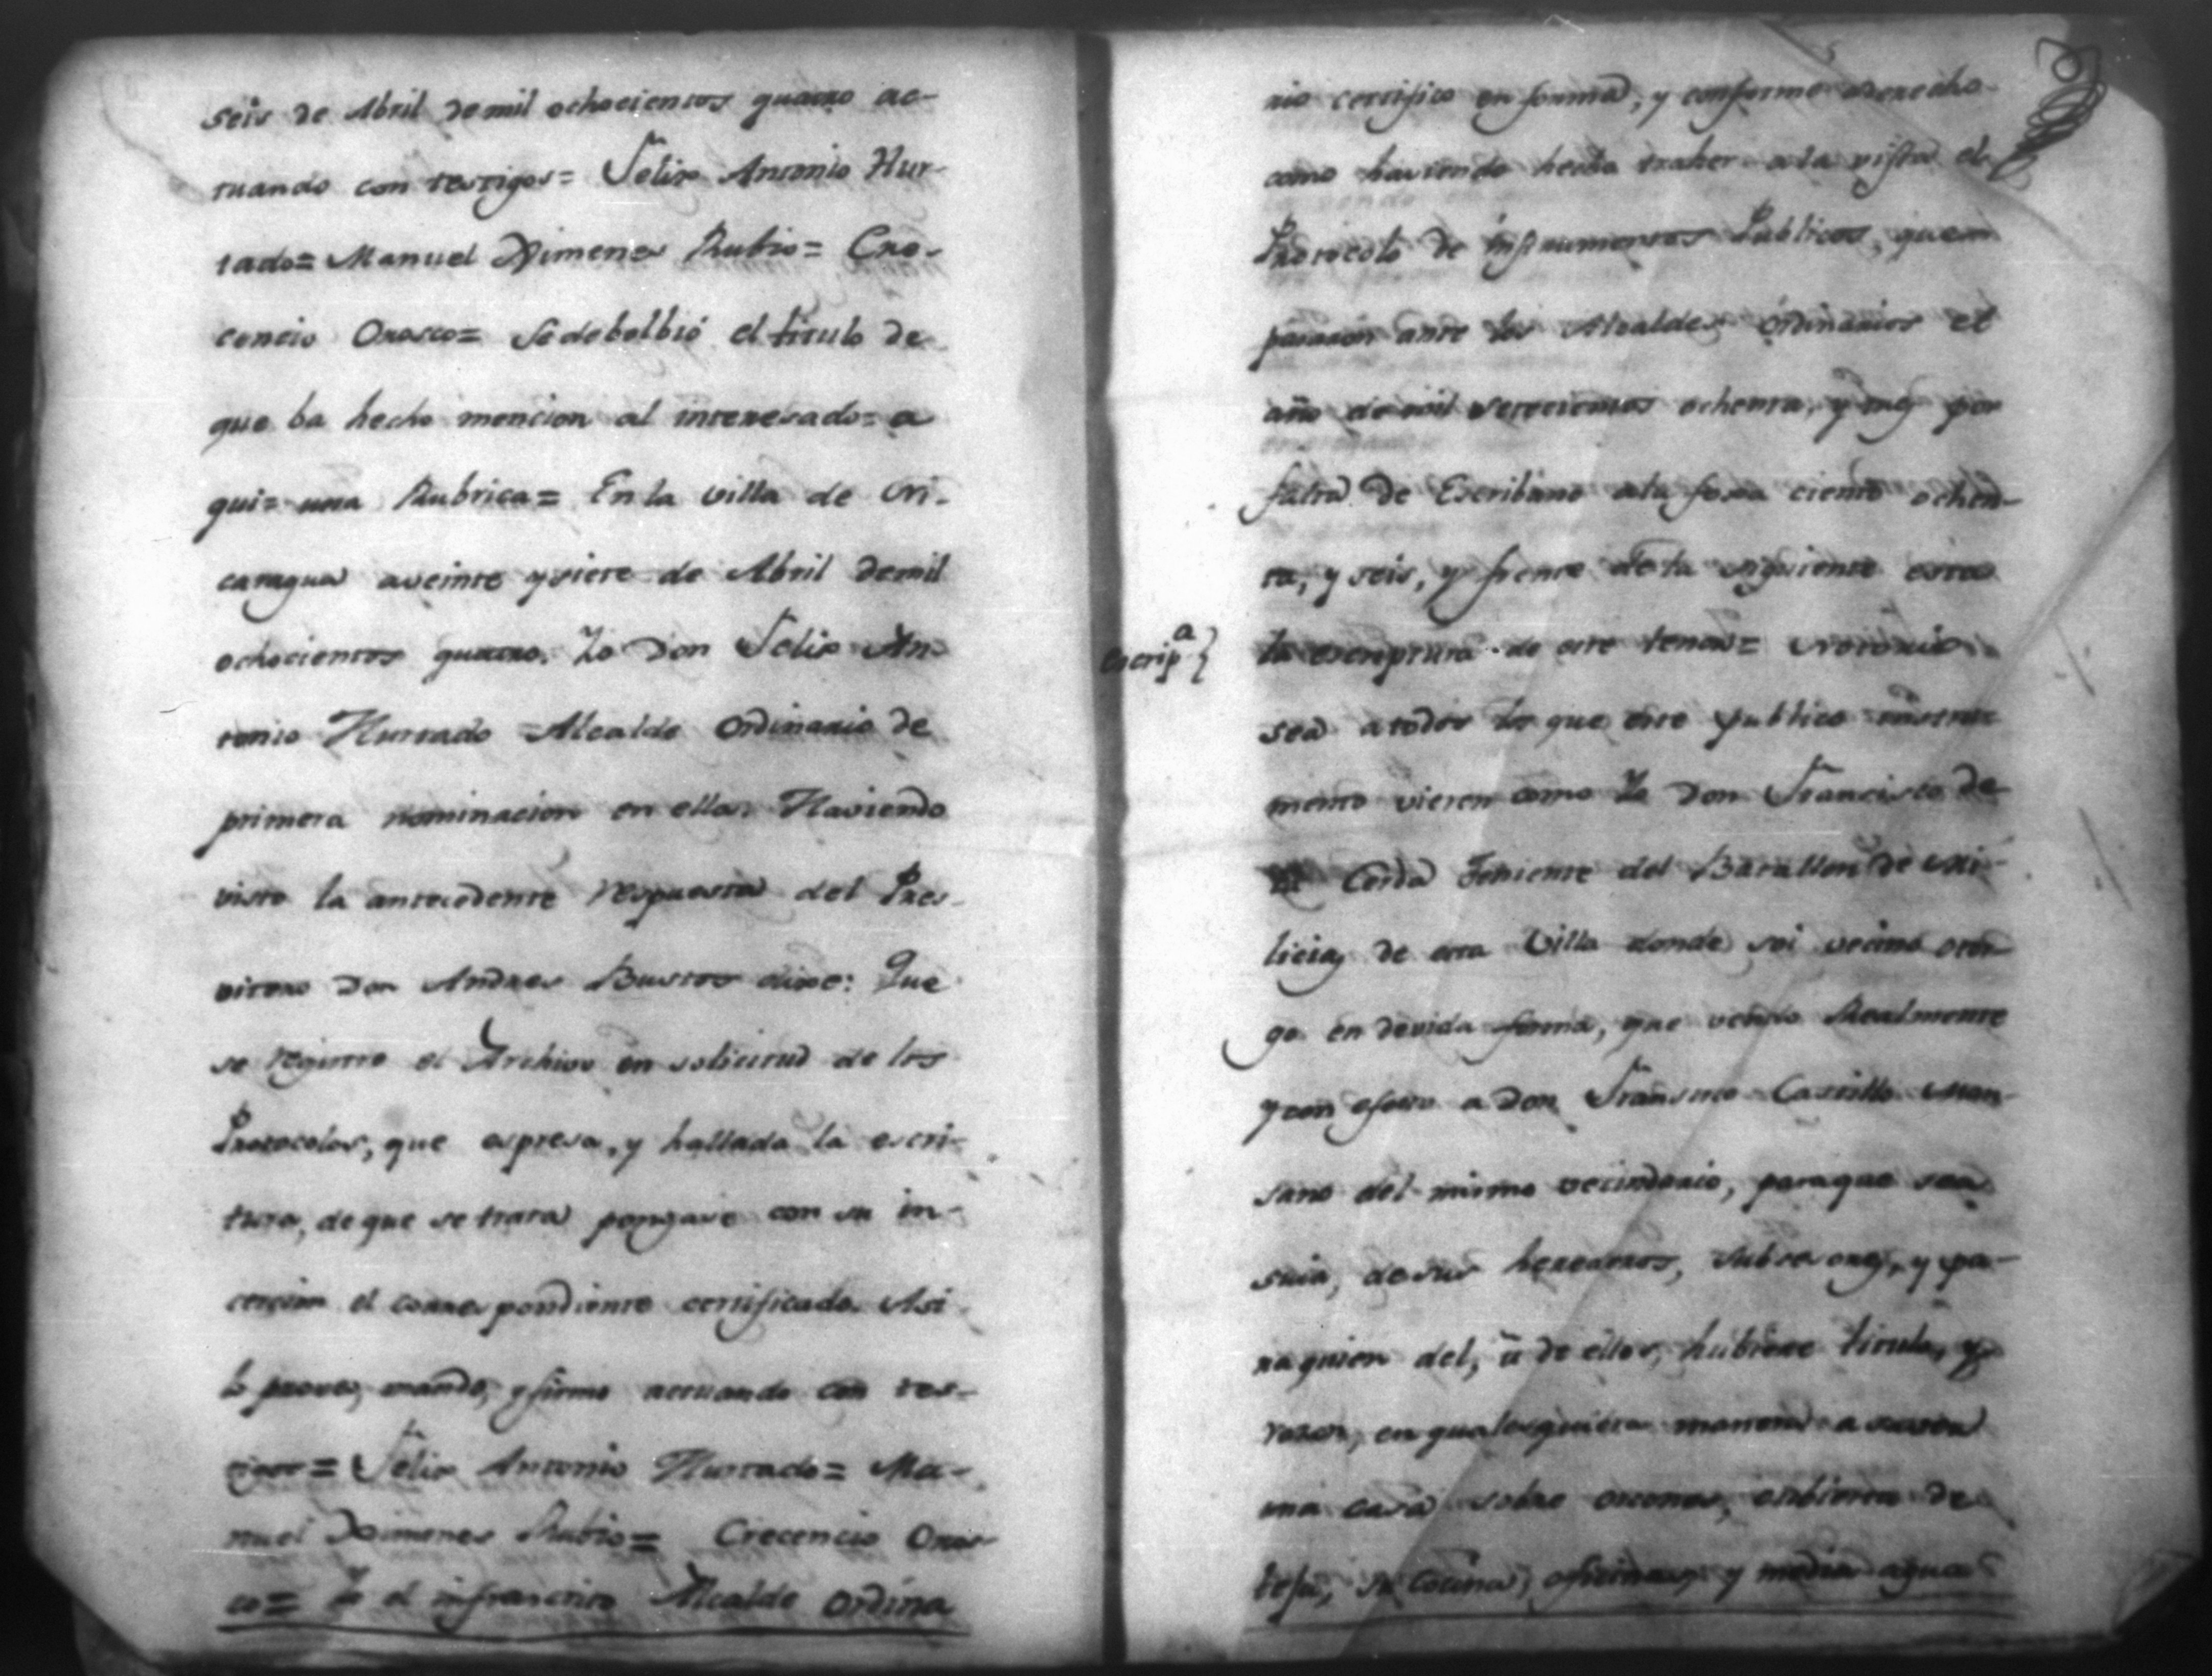 seis de Abril de mil ochocientos quatro ac-
tuando con testigos= Felix Antonio Hur-
tado= Manuel Ximenes Rubio= Cre-
cencio Orosco= Se debolbió el titulo de
que ha hecho mencion al interesado= a
qui= una Rubrica= En la villa de Ni-
caragua a veinte y siete de Abril de mil
ochocientos quatro. Yo Don Felix An-
tonio Hurtado Alcalde Ordinario de
primera nominacion en ella. Haviendo
visto la antecedente respuesta del Pres-
vitero Don Andres Bustos dixe: Que
se registre el Archivo en solicitud de los
Protocolos, que espresa, y hallada la escri-
tura, de que se trata pongase con su in-
cercion el correspondiente certificado. Asi
lo proveo, mando, y firmo actuando con tes-
tigos= Felix Antonio Hurtado= Ma-
nuel Ximenes Rubio= Crecencio Oros-
co= Yo el infrascrito Alcalde Ordina
rio certifico en forma, y conforme a derecho
como haviendo hecho traher a la vista el
Protocolo de instrumentos Publicos, que
pasaron ante los Alcaldes ordinarios el
año de mil setecientos ochenta, y por
falta de Escribano a la foxa ciento ochen-
ta, y seis, y frente de la siguiente esta
escrip.a }
la escriptura de este tenor= Notorio
sea a todos los que este publico instru-
mento vieren como Yo Don Francisco de
la Cerda Teniente del Batallon de Mi-
licias de esta Villa donde soi vecino otor-
go en devida forma, que vendo Realmente
y con efecto a Don Francisco Castillo
sano del mismo vecindario, para que sea
suia, de sus herederos, subsesores, y pa-
ra quien del, ú de ellos, hubiere titulo, y
razon, en qualesquiera manera a saver
una casa sobre orcones, cubierta de
teja, su cocina, oficinas, y media agua